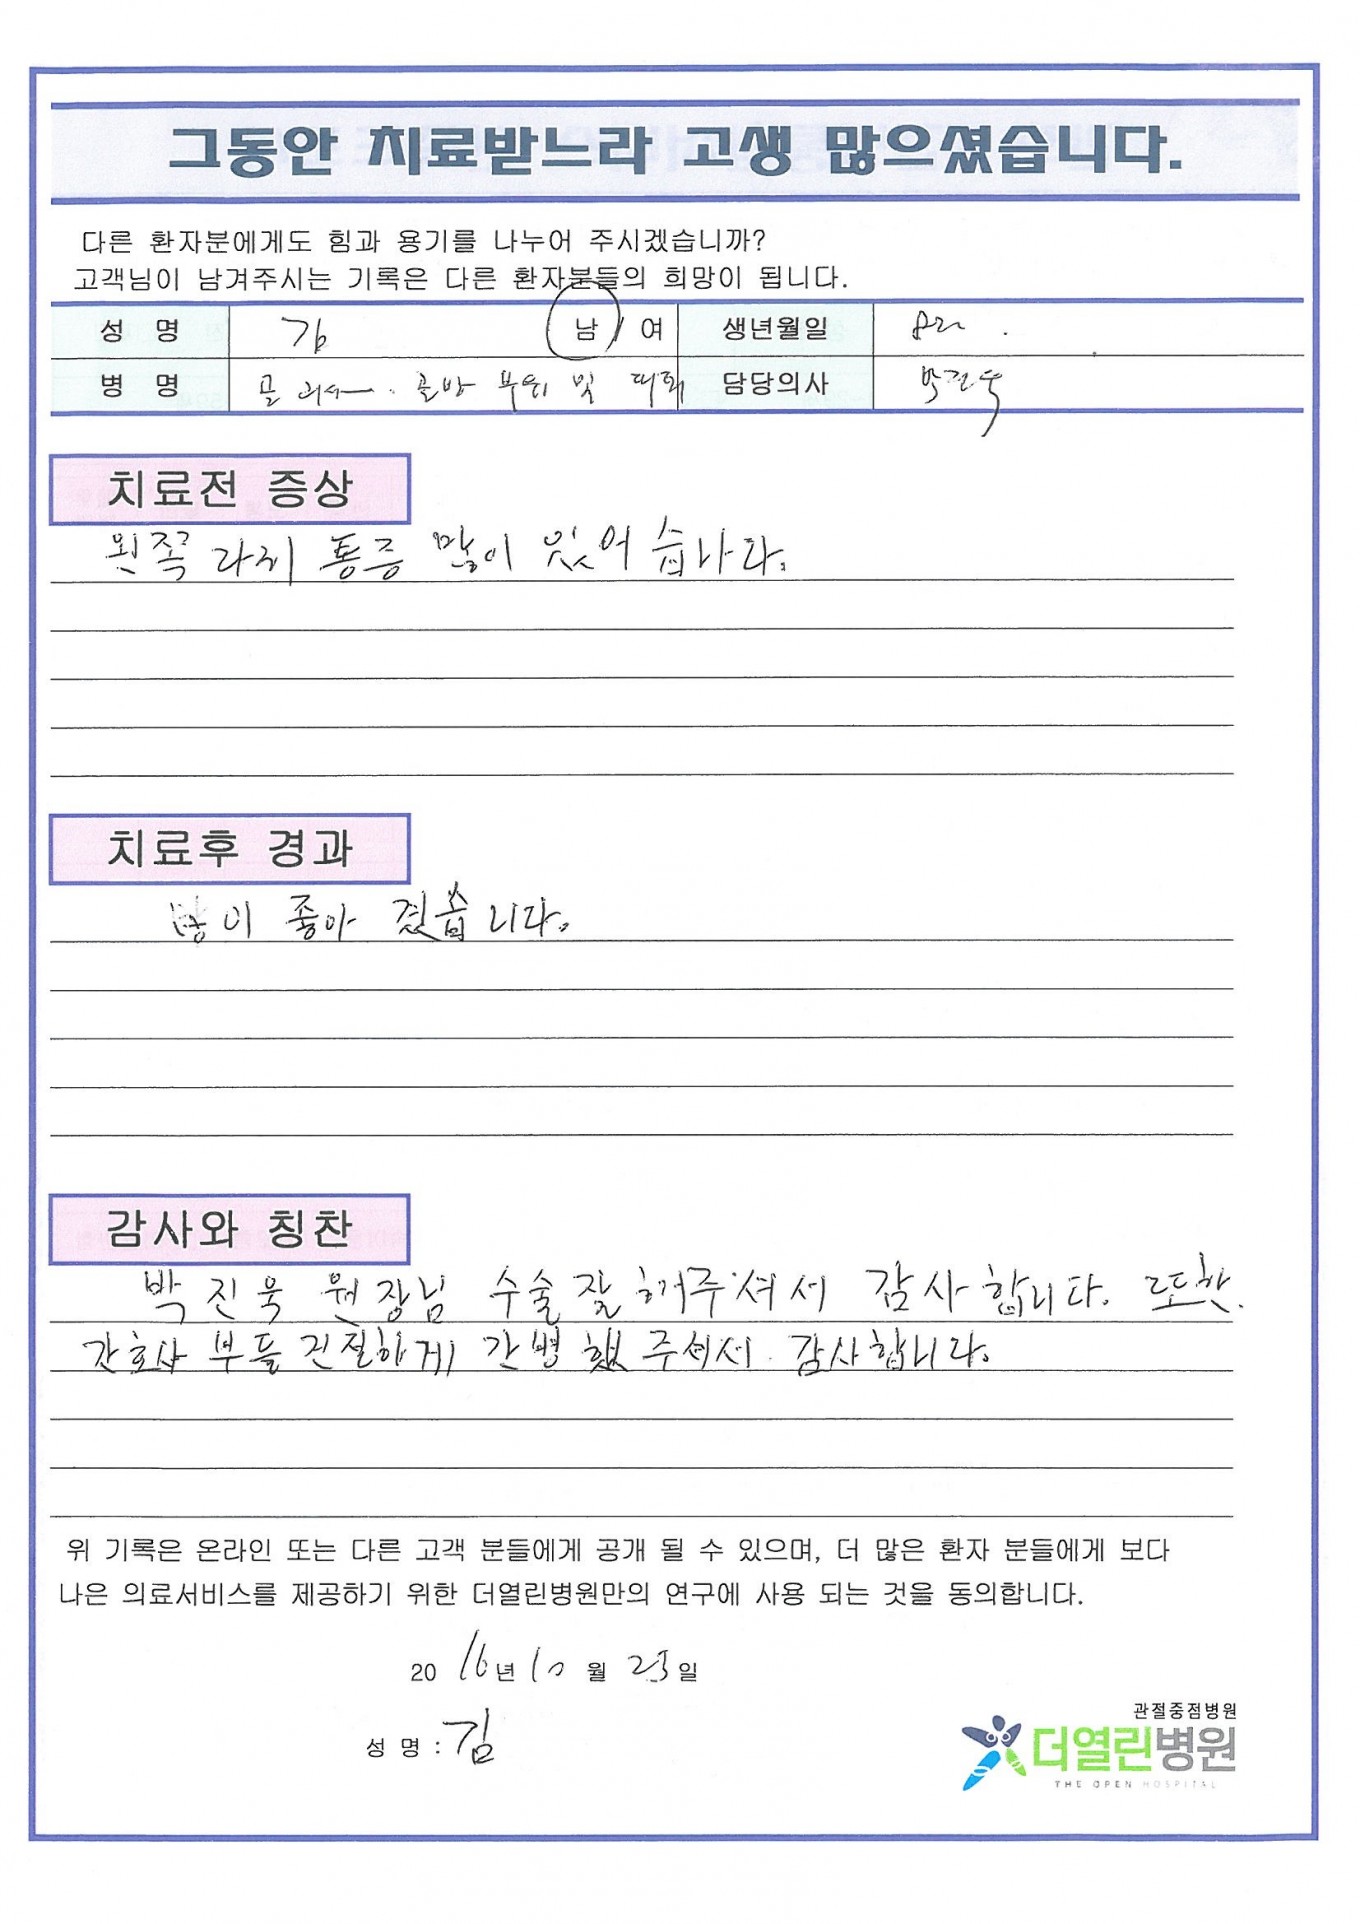 그동안 치료받느라 고생 많으셨습니다.
다른 환자분에게도 힘과 용기를 나누어 주시겠습니까?
고객님이 남겨주시는 기록은 다른 환자분들의 희망이 됩니다.
성 명 김 남 / 여 생년월일
병 명 부위 및 담당의사 박진욱
치료전 증상
왼쪽 다리 통증 많이 있어 습니다.
치료후 경과
많이 좋아 졌습니다.
감사와 칭찬
박진욱 원장님 수술 잘 해주셔서 감사합니다. 또한
간호사 부들 친절하게 간병 했 주셔서. 감사합니다.
위 기록은 온라인 또는 다른 고객 분들에게 공개 될 수 있으며, 더 많은 환자 분들에게 보다
나은 의료서비스를 제공하기 위한 더열린병원만의 연구에 사용 되는 것을 동의합니다.
2016년 10월 25일
성 명 : 김
관절중점병원
더열린병원
THE OPEN HOSPITAL